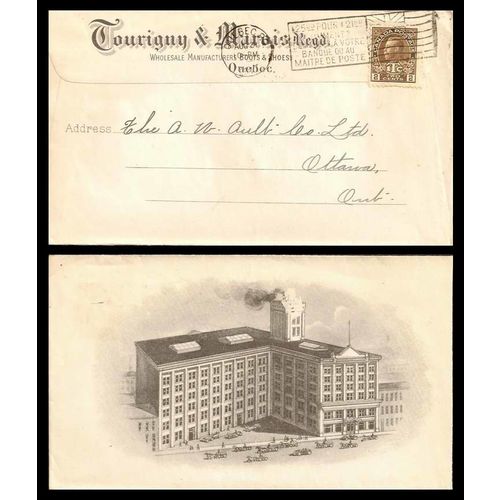 Tourigny & Marois Reg'd.
Wholesale Manufacturers Boots & Shoes
Quebec.
BANQUE OU AU
MAITRE DE POSTE
CANADA POSTAGE
2 1Tc 2
TWO CENTS
Address The A. W. Ault Co. Ltd.
Ottawa,
Ont.